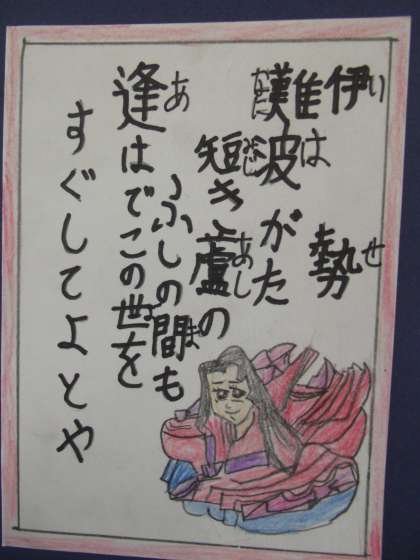 伊勢
難波がた
短き蘆の
ふしの間も
逢はでこの世を
すぐしてよとや